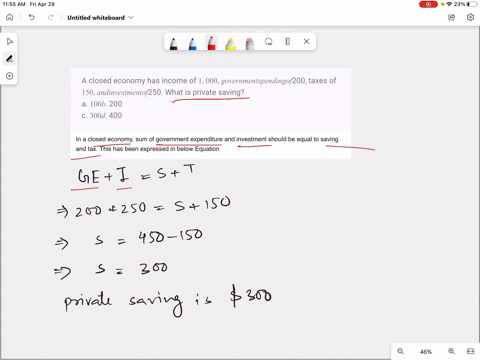 11:55 AM Fri Apr 29
23%
Untitled whiteboard
A closed economy has income of 1, 000, governmentspendingof200, taxes of
150, andinvestmentof250. What is private saving?
a. 100b. 200
c. 300d. 400
In a closed economy, sum of government expenditure and investment should be equal to saving
and tax. This has been expressed in below Equation
GE + I = S + T
⇒ 200 + 250 = S + 150
⇒ S = 450 - 150
⇒ S = 300
private saving is $300
46%